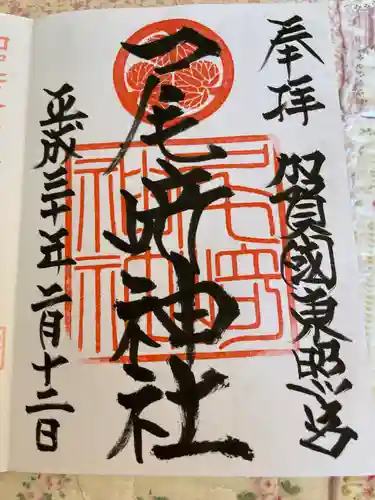 奉拝
賀國東照宮
尾崎神社
平成三十年二月十二日